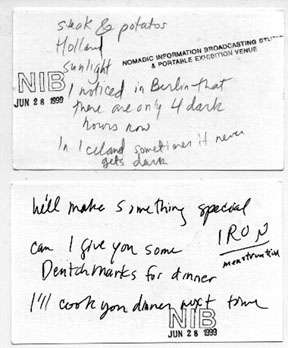 steak & potatos
Holland
sunlight
NOMADIC INFORMATION BROADCASTING STUDIO
& PORTABLE EXHIBITION VENUE
NIB
JUN 28 1999
I noticed in Berlin that
there are only 4 dark
hours now
In Iceland sometimes it never
gets dark
we'll make something special
IRON
menstruation
can I give you some
Deutchmarks for dinner
I'll cook you dinner next time
NIB
JUN 28 1999